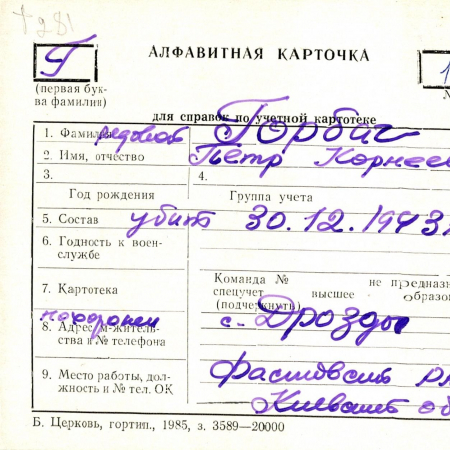 +281
Г
АЛФАВИТНАЯ КАРТОЧКА
1
(первая бук-
ва фамилии)
для справок по учетной картотеке
1. Фамилия рядовой Горбач
2. Имя, отчество Петр Корнее
3.
4.
Год рождения
Группа учета
5. Состав убит 30.12.1943
6. Годность к воен-
службе
7. Картотека
Команда №
не предназн
спецучет
высшее
образо
(подчеркнуть)
похоронен с. Дрозды
8. Адрес м-житель-
ства и № телефона
9. Место работы, дол-
жность и № тел. ОК
Фастовский
Киевской об
Б. Церковь, гортип., 1985, з. 3589—20000